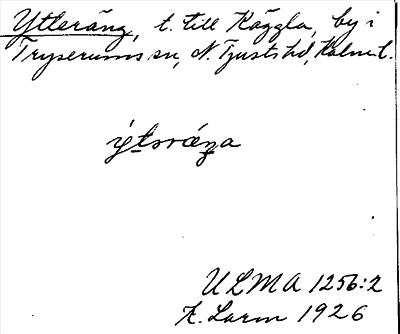 Ytteräng, t. till Käggla, by i
Tryserums sn, N. Tjusts hd, Kalm. l.
ýtəræŋa
ULMA 1256:2
K. Larm 1926